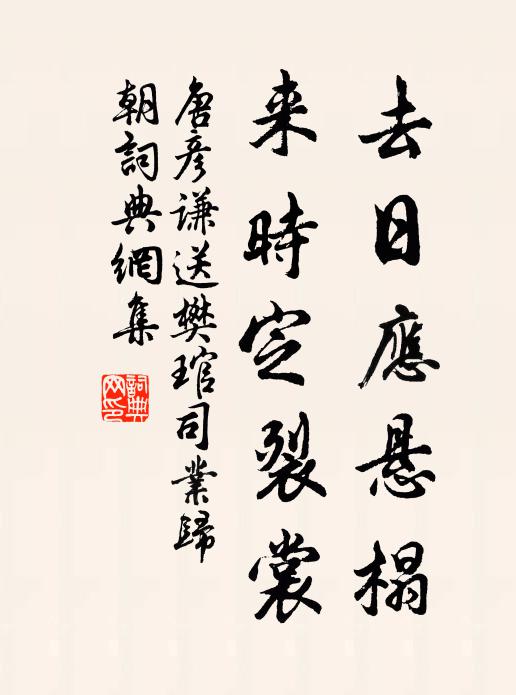 去日應懸榻
来時定裂裳
唐彦謙送樊琯司業歸
朝詞典網集
詞典網印